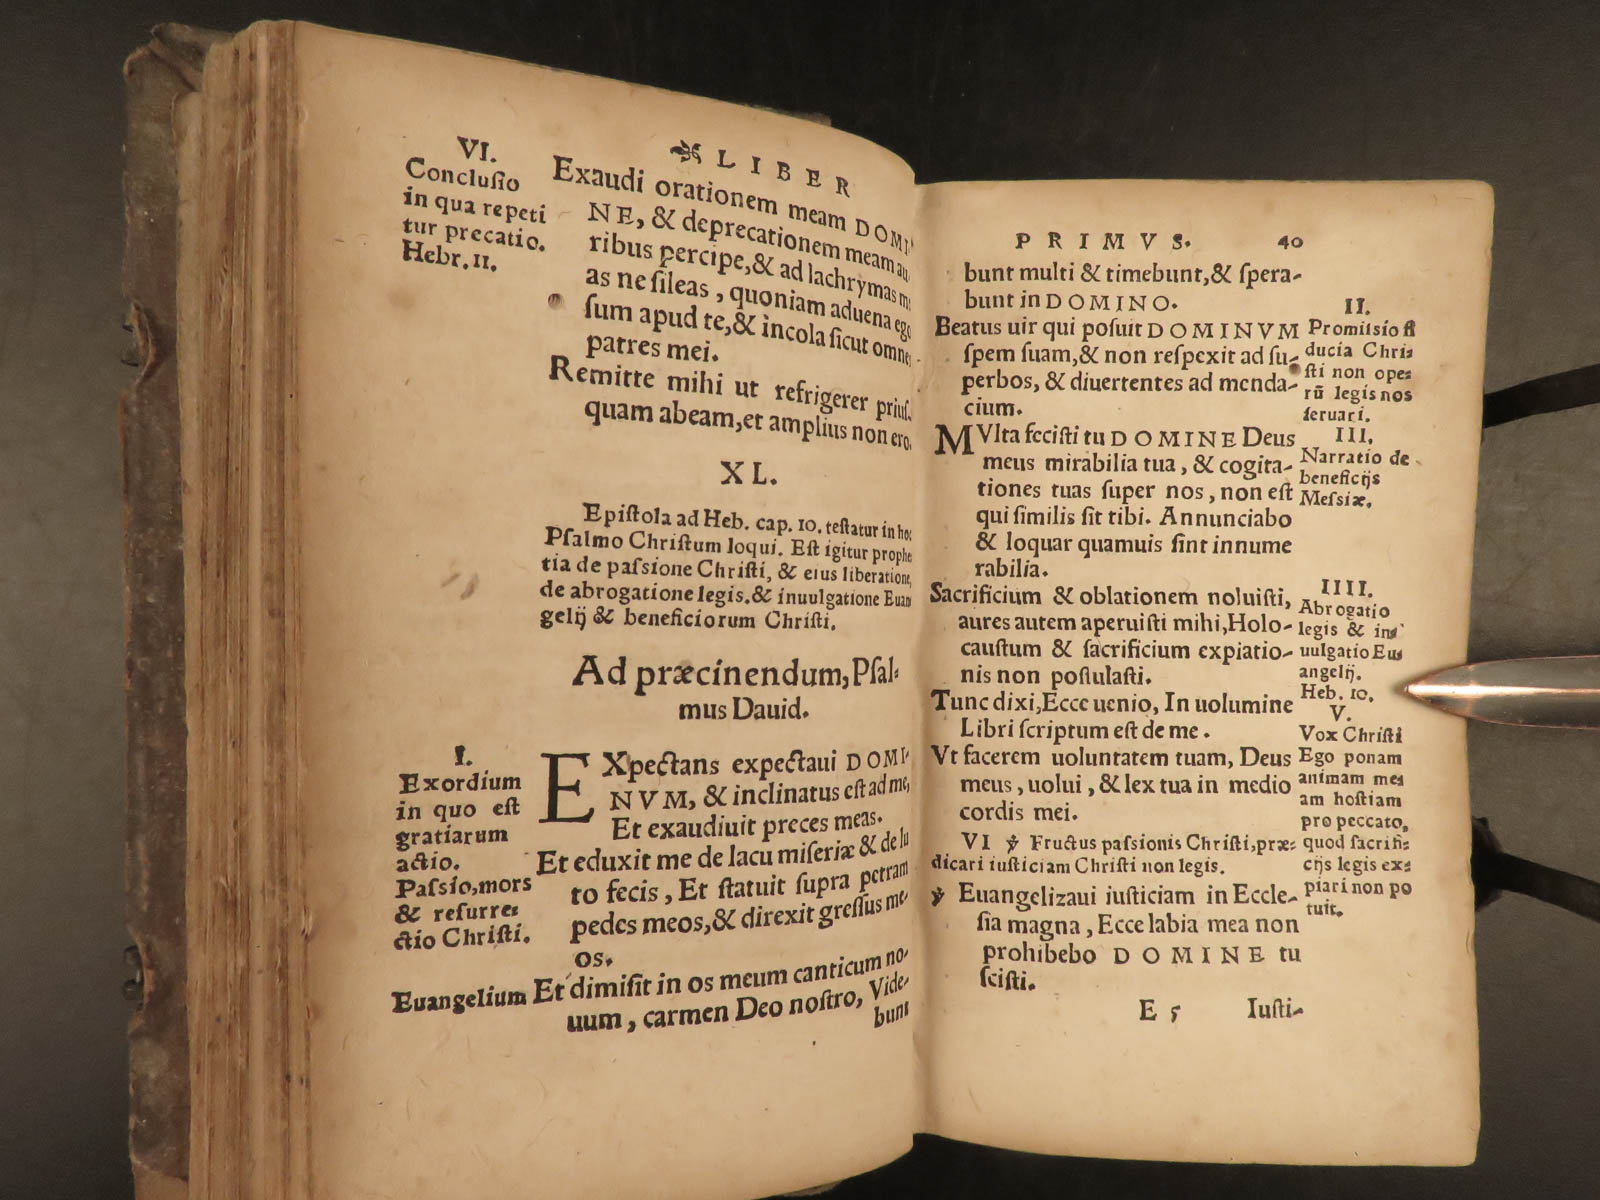 LIBER
VI.
Conclusio
in qua repeti
tur precatio.
Hebr. 11.
Exaudi orationem meam DOMI-
NE, & deprecationem meam au
ribus percipe, & ad lachrymas me
as ne sileas, quoniam aduena ego
sum apud te, & incola sicut omnes
patres mei.
Remitte mihi ut refrigerer prius-
quam abeam, et amplius non ero.
XL.
Epistola ad Heb. cap. 10. testatur in hoc
Psalmo Christum loqui. Est igitur prophe
tia de passione Christi, & eius liberatione,
de abrogatione legis, & inuulgatione Euan
gelij & beneficiorum Christi.
Ad præcinendum, Psal-
mus Dauid.
I.
Exordium
in quo est
gratiarum
actio.
Passio, mors
& resurre-
ctio Christi.
EXpectans expectaui DOMI-
NVM, & inclinatus est ad me,
Et exaudiuit preces meas.
Et eduxit me de lacu miseriæ & de lu
to fecis, Et statuit supra petram
pedes meos, & direxit gressus me-
os.
Euangelium
Et dimisit in os meum canticum no-
uum, carmen Deo nostro, Vide-
bunt
PRIMVS. 40
bunt multi & timebunt, & spera-
bunt in DOMINO.
Beatus uir qui posuit DOMINVM
spem suam, & non respexit ad su-
perbos, & diuertentes ad menda-
cium.
II.
Promissio fi
ducia Chri-
sti non ope-
rū legis nos
seruari.
MVlta fecisti tu DOMINE Deus
meus mirabilia tua, & cogita-
tiones tuas super nos, non est
qui similis sit tibi. Annunciabo
& loquar quamuis sint innume
rabilia.
III.
Narratio de
beneficijs
Messiæ.
Sacrificium & oblationem noluisti,
aures autem aperuisti mihi, Holo-
caustum & sacrificium expiatio-
nis non postulasti.
IIII.
Abrogatio
legis & in-
uulgatio Eu-
angelij.
Heb. 10.
Tunc dixi, Ecce uenio, In uolumine
Libri scriptum est de me.
Vt facerem uoluntatem tuam, Deus
meus, uolui, & lex tua in medio
cordis mei.
V.
Vox Christi
Ego ponam
animam me-
am hostiam
pro peccato,
quod sacrifi-
cijs legis ex-
piari non po
tuit.
VI ℣ Fructus passionis Christi, præ-
dicari iusticiam Christi non legis.
℣ Euangelizaui iusticiam in Eccle-
sia magna, Ecce labia mea non
prohibebo DOMINE tu
scisti.
E 5 Iusti-